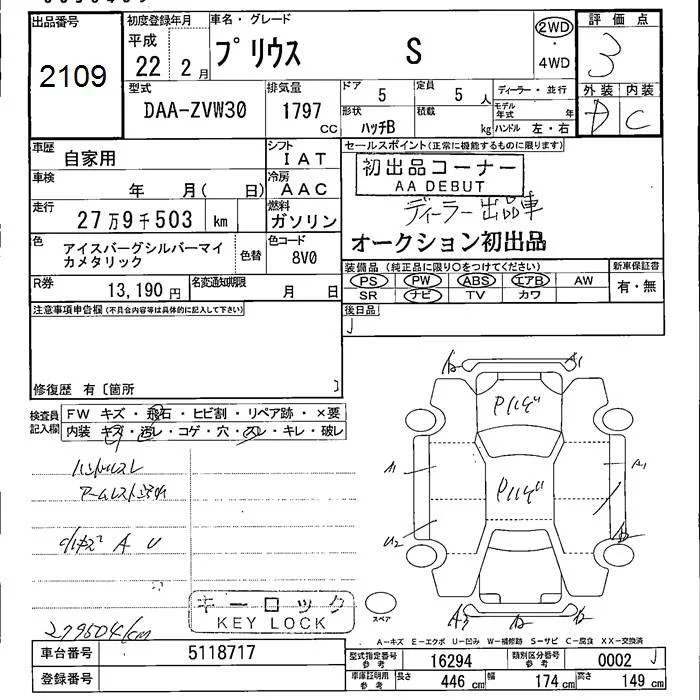 出品番号
2109
初度登録年月
平成
22 2月
車名・グレード
プリウス S
2WD
4WD
評価点
3
外装 内装
D C
型式
DAA-ZVW30
排気量
1797
CC
ドア
5
定員
5 人
形状
ハッチB
積載
kg
ディーラー・並行
モデル年式 年
ハンドル 左・右
車歴
自家用
シフト
IAT
車検
年 月( 日)
冷房
AAC
走行
27万9千503 km
燃料
ガソリン
色
アイスバーグシルバーマイカメタリック
色替
色コード
8V0
R券
13,190 円
名変通知期限
月 日
セールスポイント(正常に機能するものに限ります)
初出品コーナー
AA DEBUT
ディーラー出品車
オークション初出品
装備品(純正品に限り○をつけてください)
PS PW ABS エアB AW
SR ナビ TV カワ
新車保証書
有・無
後日品
注意事項申告欄(不具合内容等は具体的に記入して下さい)
修復歴 有〔箇所 〕
検査員記入欄
FW キズ・飛石・ヒビ割・リペア跡・×要
内装 キズ・汚レ・コゲ・穴・スレ・キレ・破レ
ハンドルスレ
A U
279504km
キーロック
KEY LOCK
A1
A1
A1
U2
スペア
A-キズ E-エクボ U-凹み W-補修跡 S-サビ C-腐食 XX-交換済
車台番号
5118717
登録番号
型式指定番号 参考
16294
類別区分番号 参考
0002
車庫証明用 参考
長さ 446 cm 幅 174 cm 高さ 149 cm